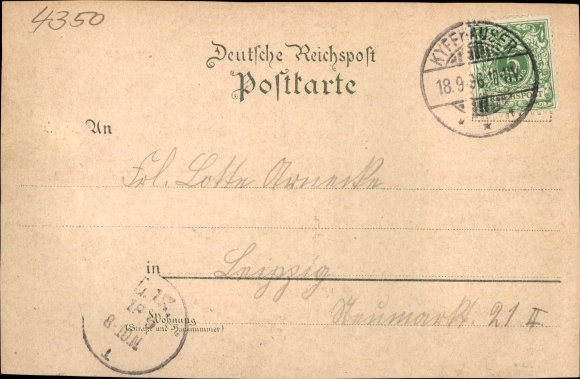 4350
Deutsche Reichspost
Postkarte
KYFFHÄUSER
18.9.
An
Frl. Lotte Arnecke
in Leipzig
Wohnung
(Straße und Hausnummer)
Neumarkt. 21 II